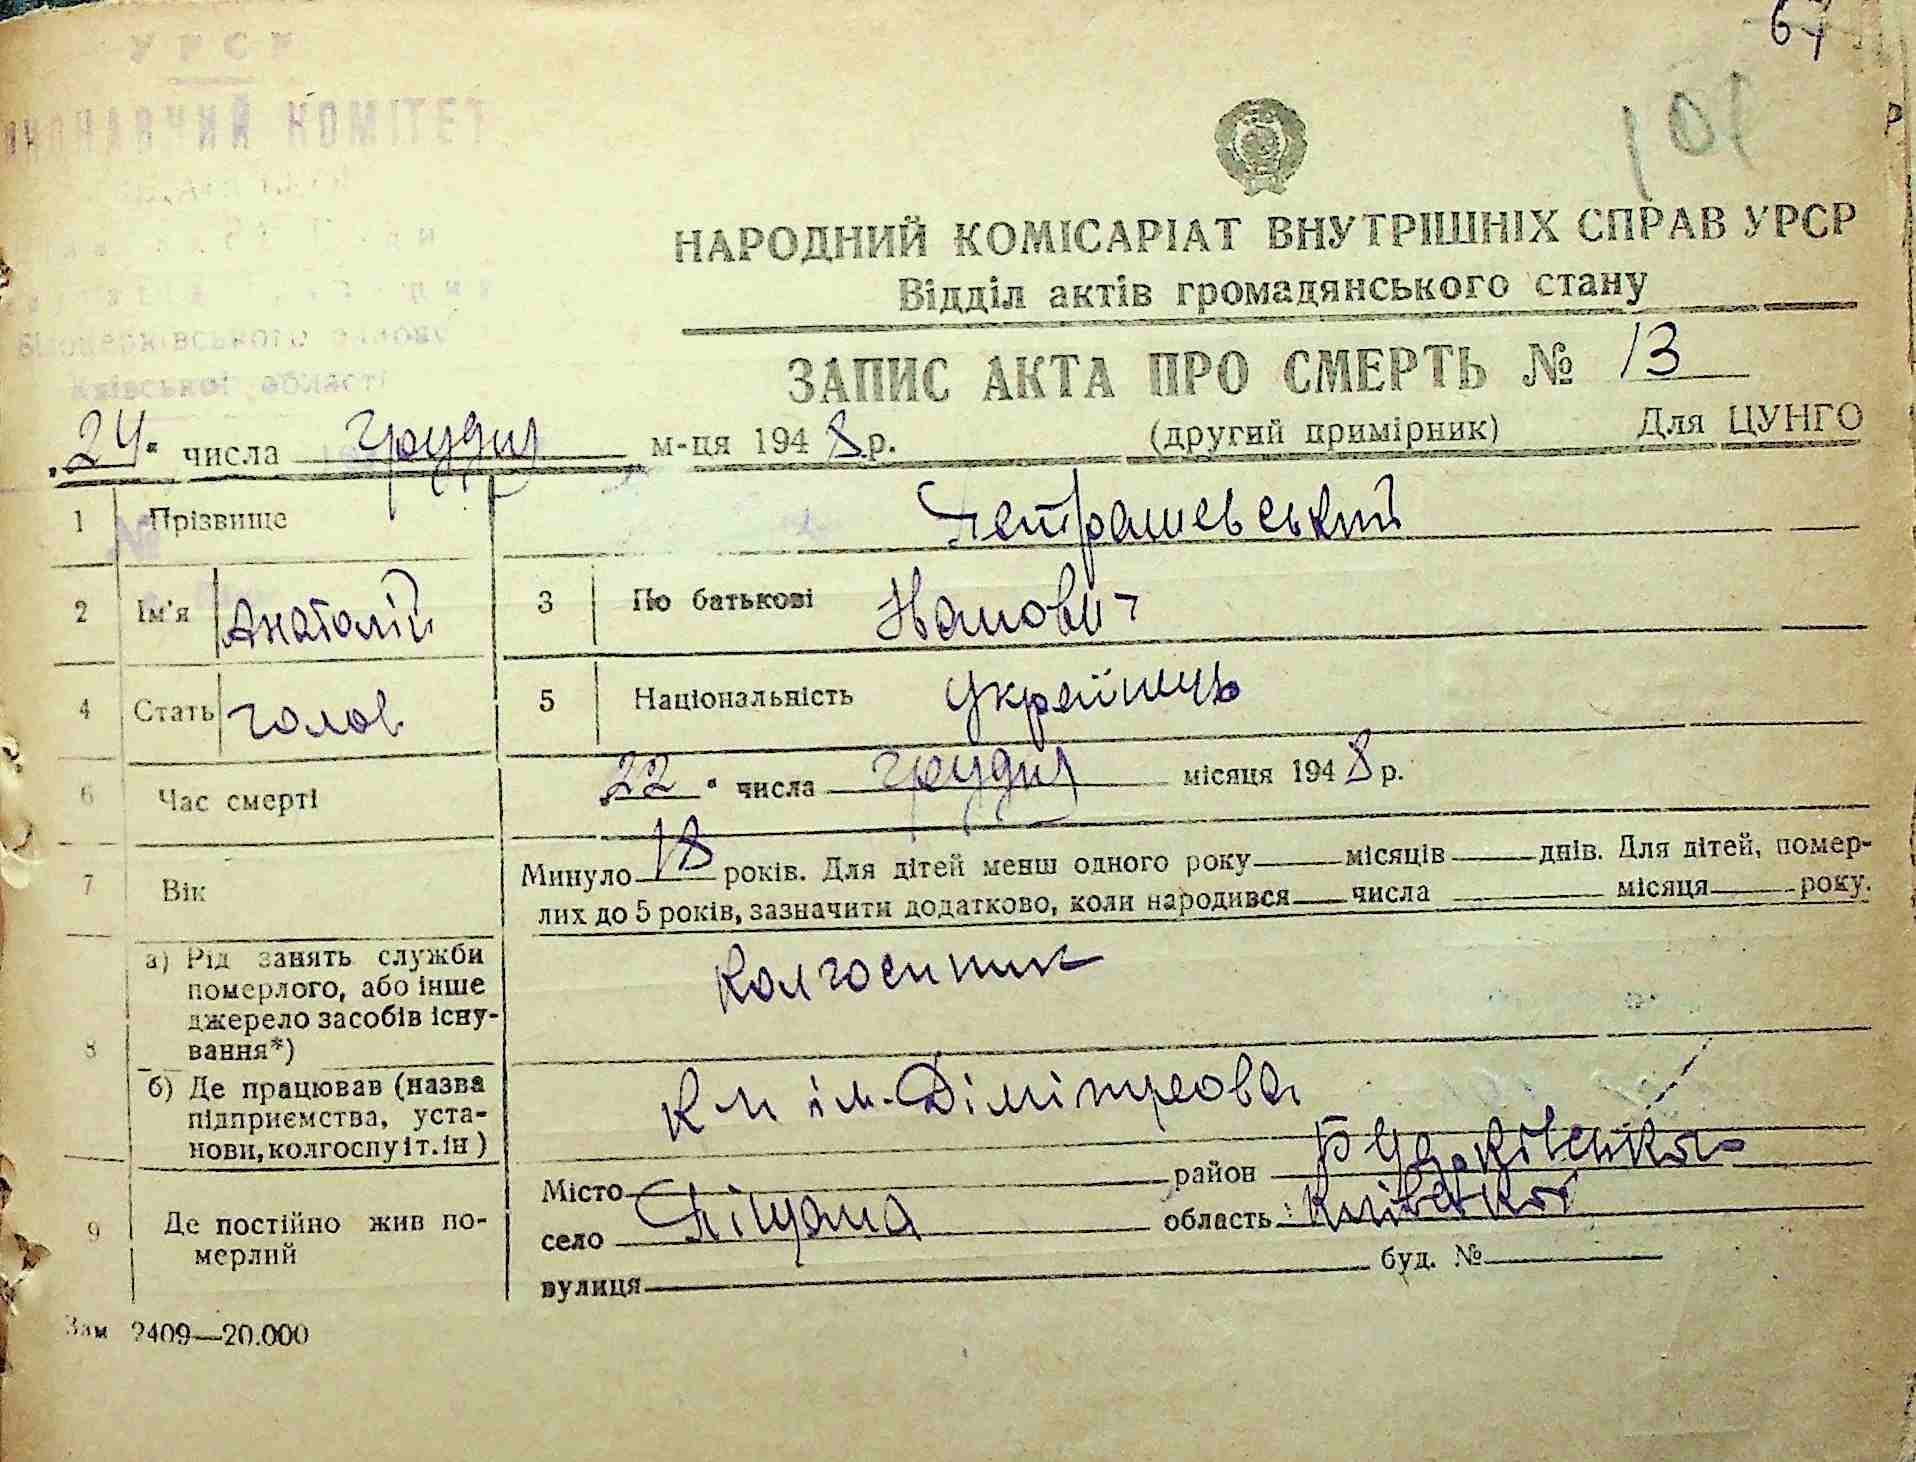 67
101
УРСР
ВИКОНАВЧИЙ КОМІТЕТ
Білоцерківського району
Київської області
НАРОДНИЙ КОМІСАРІАТ ВНУТРІШНІХ СПРАВ УРСР
Відділ актів громадянського стану
ЗАПИС АКТА ПРО СМЕРТЬ № 13
„24“ числа грудня м-ця 1948 р. (другий примірник) Для ЦУНГО
1 Прізвище Петрашевський
2 Ім'я Анатолій 3 По батькові Іванович
4 Стать голов 5 Національність Українець
6 Час смерті „22“ числа грудня місяця 1948 р.
7 Вік Минуло 18 років. Для дітей менш одного року місяців днів. Для дітей, помер-
лих до 5 років, зазначити додатково, коли народився числа місяця року.
8 а) Рід занять служби
померлого, або інше
джерело засобів існу-
вання*)
Колгоспник
б) Де працював (назва
підприємства, уста-
нови, колгоспу і т. ін)
К-п ім. Дімітрова
9 Де постійно жив по-
мерлий
Місто район
село Піщана область Київської
вулиця буд. №
Зам 2409—20.000